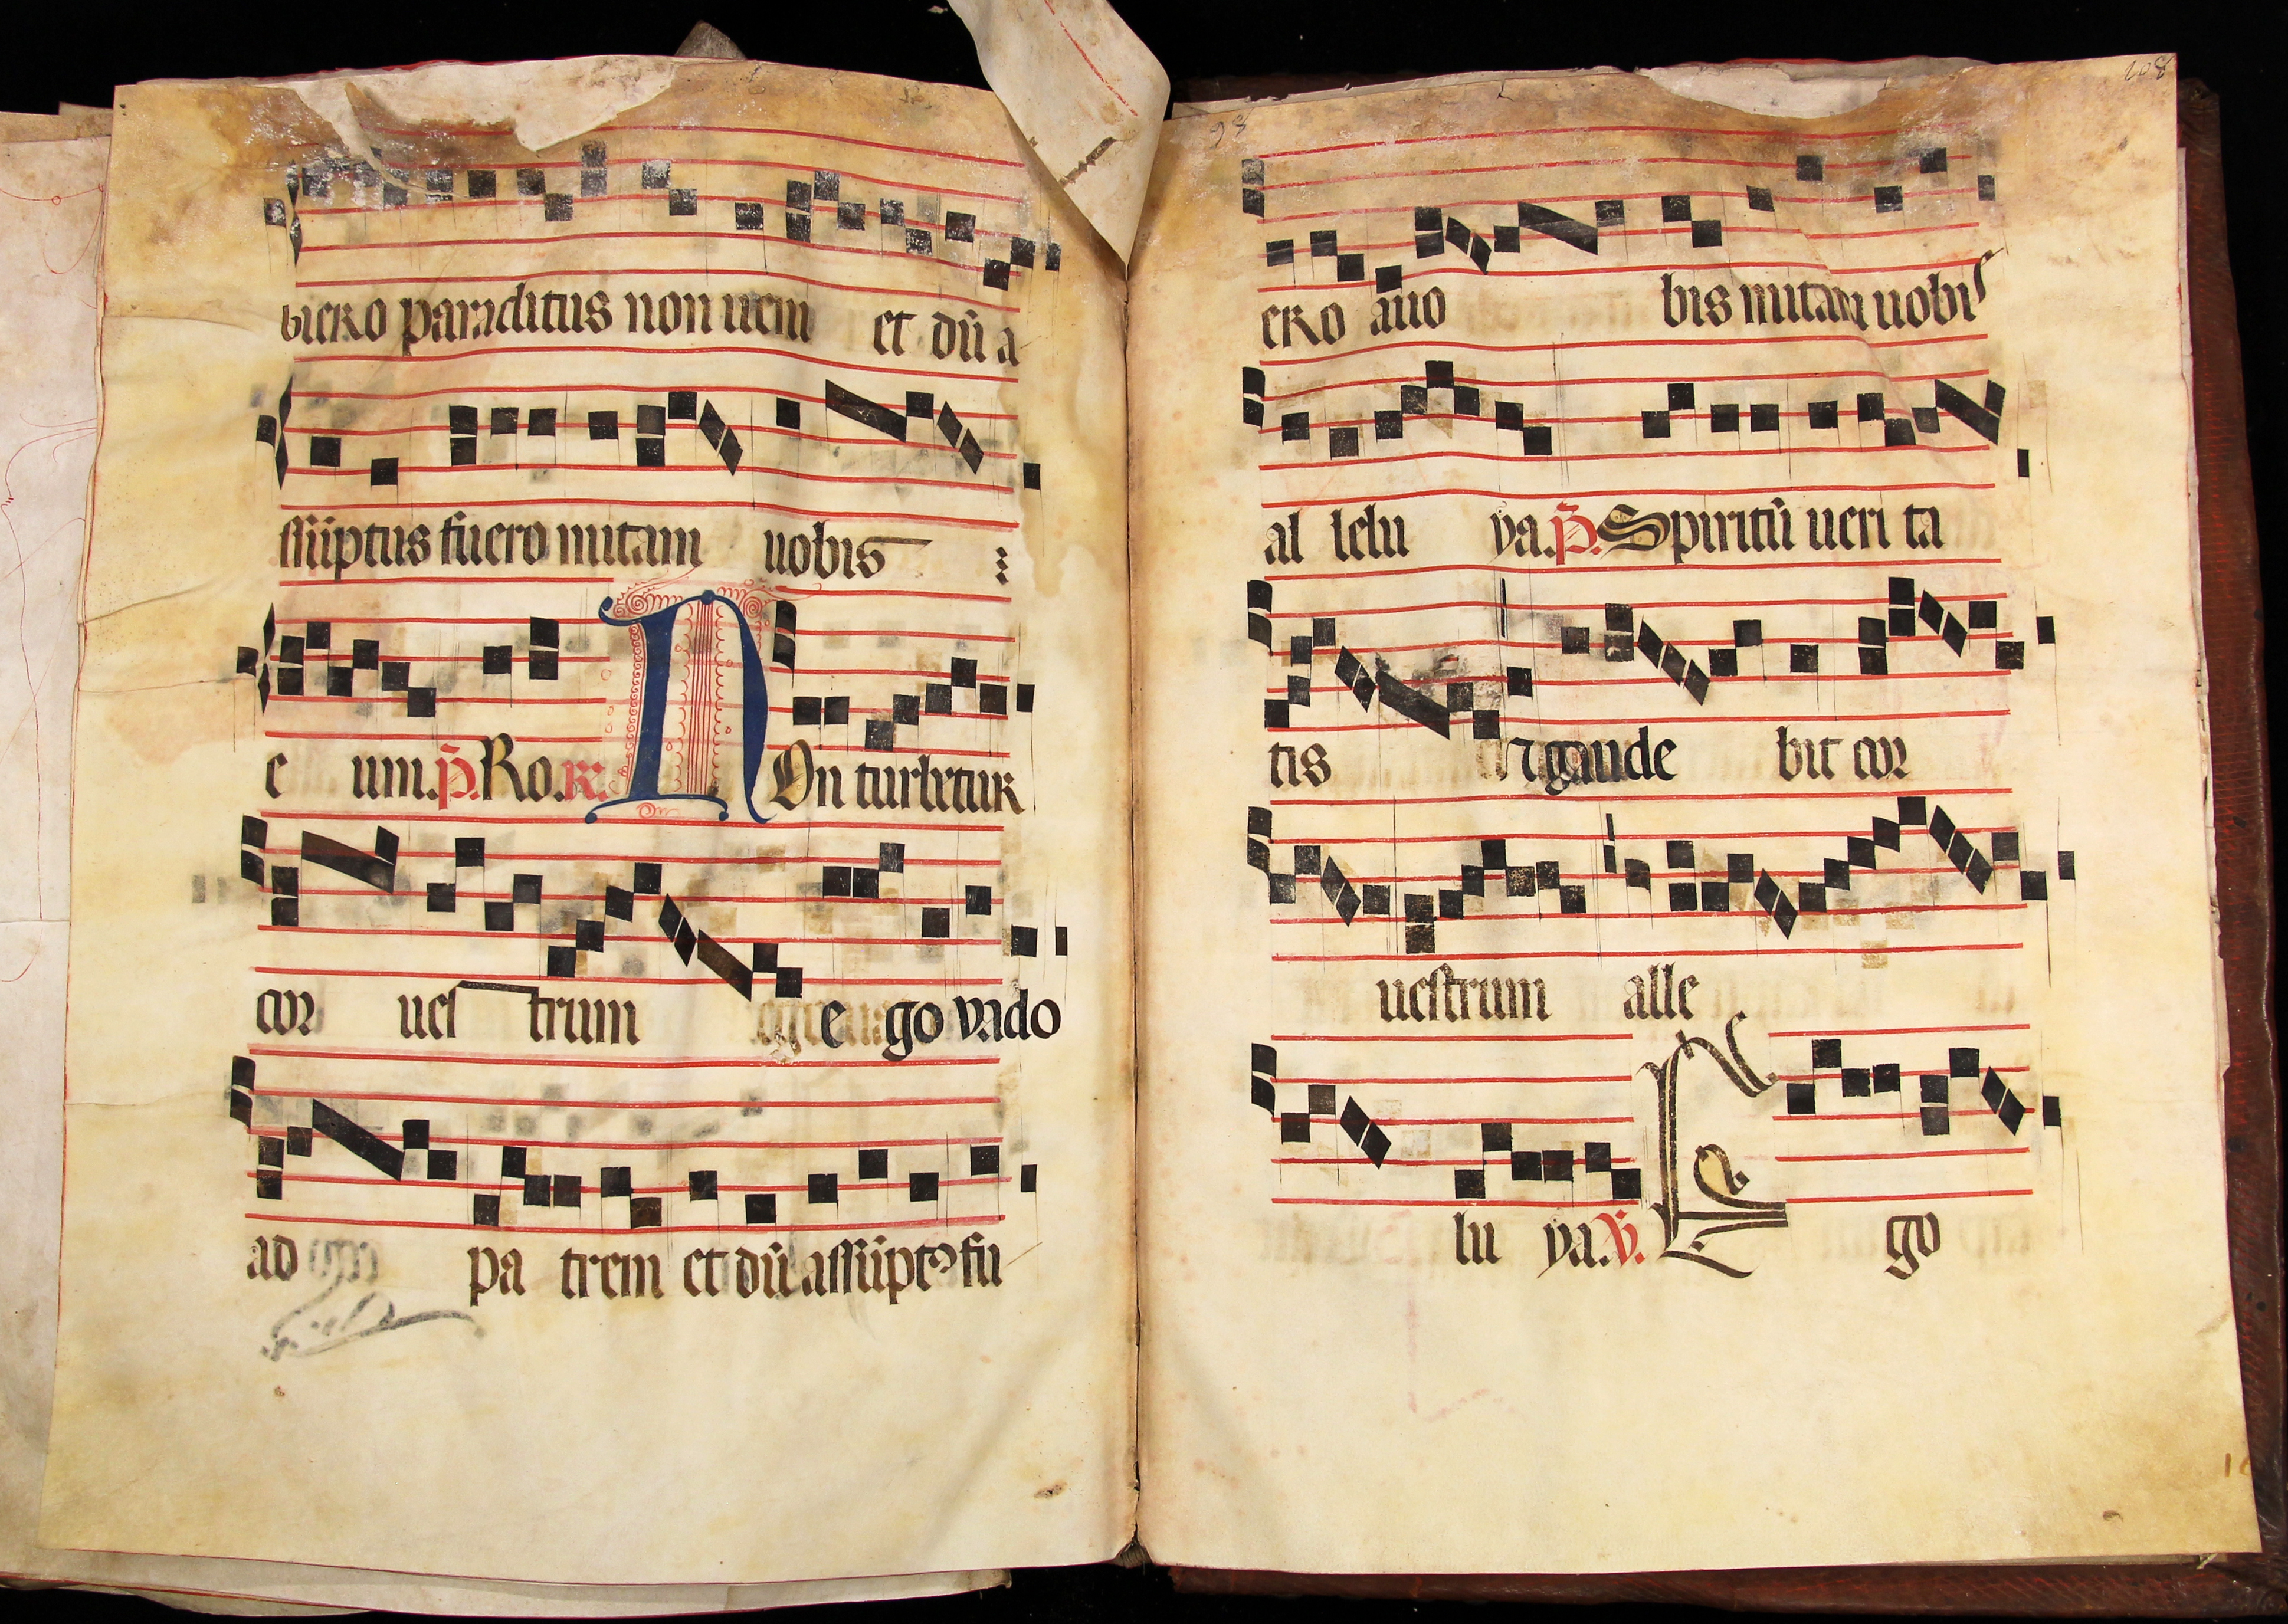 biero paraditus non ueni et dũ a
ssũptus fuero mitam uobis
e um. p̃. Ro. R. NOn turbetur
cor ues trum e go vado
ad pa trem et dũ assũptꝰ fu
98
108
ero auo bis mitam uobis
al lelu ya. p̃. Spiritũ ueri ta
tis ⁊ gaude bit cor
uestrum alle
lu ya. V. E go